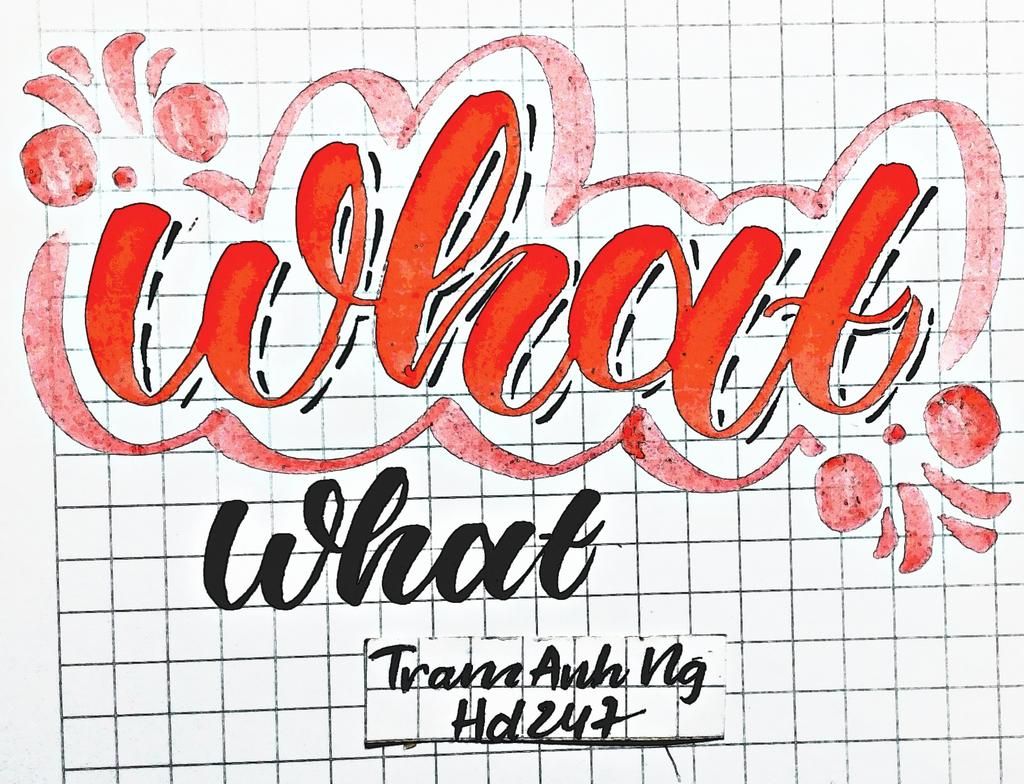 what
what
Tram Anh Ng
Hd247